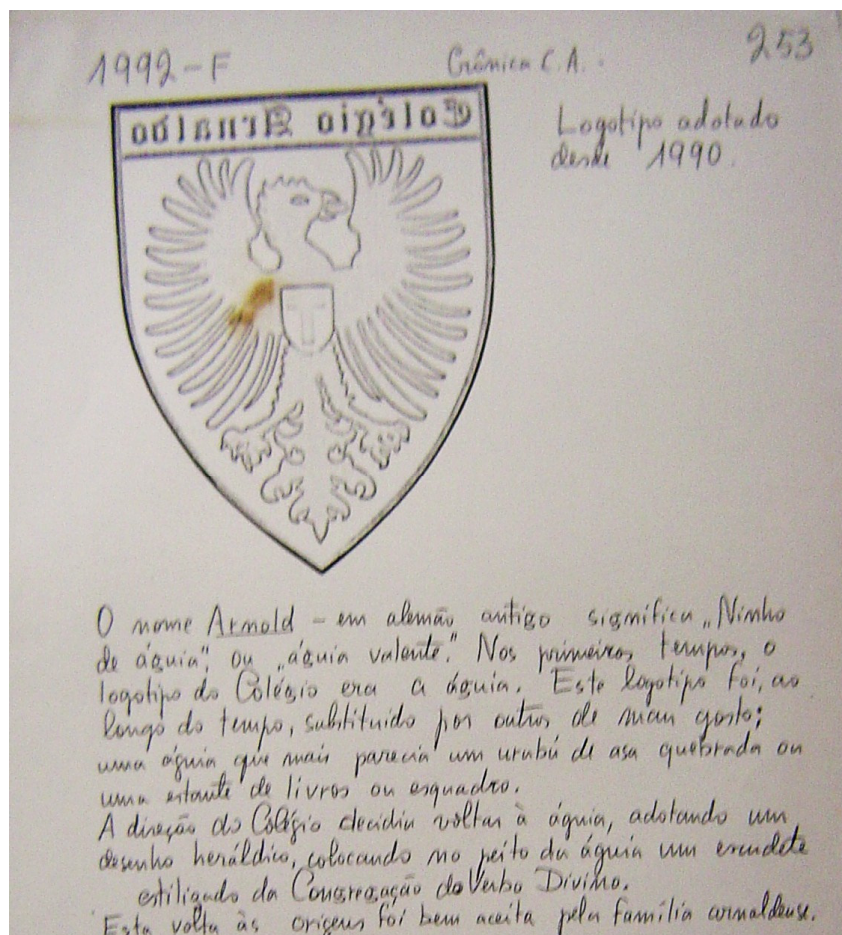 1992-F
Crônica C.A.
253
Colégio Arnaldo
Logotipo adotado
desde 1990.
O nome Arnold - em alemão antigo significa „Ninho
de águia", ou „águia valente." Nos primeiros tempos, o
logotipo do Colégio era a águia. Este logotipo foi, ao
longo do tempo, substituído por outros de mau gosto;
uma águia que mais parecia um urubú de asa quebrada ou
uma estante de livros ou esquadro.
A direção do Colégio decidiu voltar à águia, adotando um
desenho heráldico, colocando no peito da águia um escudete
estiligado da Congregação do Verbo Divino.
Esta volta às origens foi bem aceita pela família arnaldense.